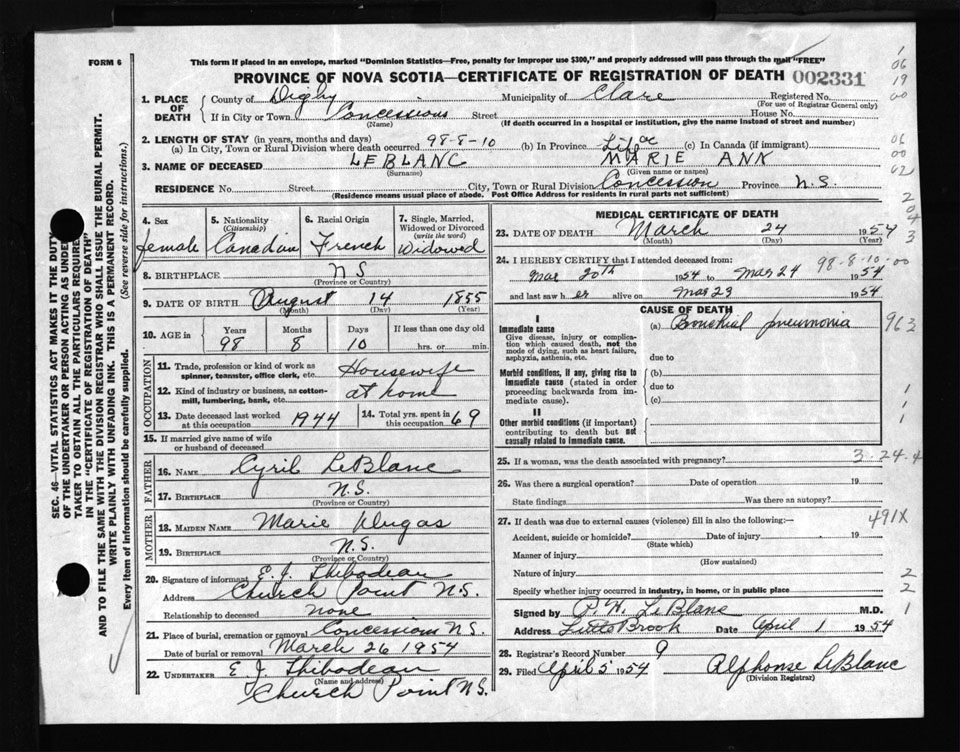 FORM 6
This form if placed in an envelope, marked "Dominion Statistics—Free, penalty for improper use $300," and properly addressed will pass through the mail "FREE"
PROVINCE OF NOVA SCOTIA—CERTIFICATE OF REGISTRATION OF DEATH 002331
1. PLACE OF DEATH
County of Digby Municipality of Clare Registered No.
(For use of Registrar General only)
If in City or Town Concessions Street House No.
(Name) (If death occurred in a hospital or institution, give the name instead of street and number)
2. LENGTH OF STAY (in years, months and days)
(a) In City, Town or Rural Division where death occurred 98-8-10 (b) In Province Life (c) In Canada (if immigrant)
3. NAME OF DECEASED LEBLANC MARIE ANN
(Surname) (Given name or names)
RESIDENCE No. Street City, Town or Rural Division Concession Province N.S.
(Residence means usual place of abode. Post Office Address for residents in rural parts not sufficient)
4. Sex
female
5. Nationality
(Citizenship)
Canadian
6. Racial Origin
French
7. Single, Married,
Widowed or Divorced
(write the word)
Widowed
8. BIRTHPLACE N S
(Province or Country)
9. DATE OF BIRTH August 14 1855
(Month) (Day) (Year)
10. AGE in Years Months Days If less than one day old
98 8 10 hrs. or min.
OCCUPATION
11. Trade, profession or kind of work as
spinner, teamster, office clerk, etc. Housewife
12. Kind of industry or business, as cotton-
mill, lumbering, bank, etc. at home
13. Date deceased last worked
at this occupation 1944
14. Total yrs. spent in
this occupation 69
15. If married give name of wife
or husband of deceased
FATHER
16. NAME Cyril LeBlanc
17. BIRTHPLACE N.S.
(Province or Country)
MOTHER
18. MAIDEN NAME Marie Dugas
19. BIRTHPLACE N.S.
(Province or Country)
20. Signature of informant E. J. Thibodeau
Address Church Point N.S.
Relationship to deceased none
21. Place of burial, cremation or removal Concessions N.S.
Date of burial or removal March 26 1954
22. UNDERTAKER E J Thibodeau
(Name and address)
Church Point N.S.
MEDICAL CERTIFICATE OF DEATH
23. DATE OF DEATH March 24 1954
(Month) (Day) (Year)
24. I HEREBY CERTIFY that I attended deceased from: 98-8-10-00
Mar 20th 1954 to Mar 24 1954
and last saw her alive on Mar 23 1954
CAUSE OF DEATH
I
Immediate cause
Give disease, injury or complica-
tion which caused death, not the
mode of dying, such as heart failure,
asphyxia, asthenia, etc.
(a) Bronchial pneumonia
963
due to
Morbid conditions, if any, giving rise to
Immediate cause (stated in order
proceeding backwards from im-
mediate cause).
(b)
due to
(c)
II
Other morbid conditions (if important)
contributing to death but not
causally related to immediate cause.
25. If a woman, was the death associated with pregnancy? 3-24-4
26. Was there a surgical operation? Date of operation 19
State findings Was there an autopsy?
27. If death was due to external causes (violence) fill in also the following:— 491X
Accident, suicide or homicide? Date of injury 19
(State which)
Manner of injury
(How sustained)
Nature of injury
Specify whether injury occurred in industry, in home, or in public place
Signed by P. H. LeBlanc M.D.
Address Little Brook Date April 1 1954
28. Registrar's Record Number 9
29. Filed April 5 1954 Alphonse LeBlanc
(Division Registrar)
SEC. 46—VITAL STATISTICS ACT MAKES IT THE DUTY
OF THE UNDERTAKER OR PERSON ACTING AS UNDER-
TAKER TO OBTAIN ALL THE PARTICULARS REQUIRED
IN THE "CERTIFICATE OF REGISTRATION OF DEATH"
AND TO FILE THE SAME WITH THE DIVISION REGISTRAR WHO SHALL ISSUE THE BURIAL PERMIT.
WRITE PLAINLY WITH UNFADING INK. THIS IS A PERMANENT RECORD.
Every item of information should be carefully supplied. (See reverse side for instructions.)
06
19
00
06
00
02
2
04
3
1
1
1
2
2
1